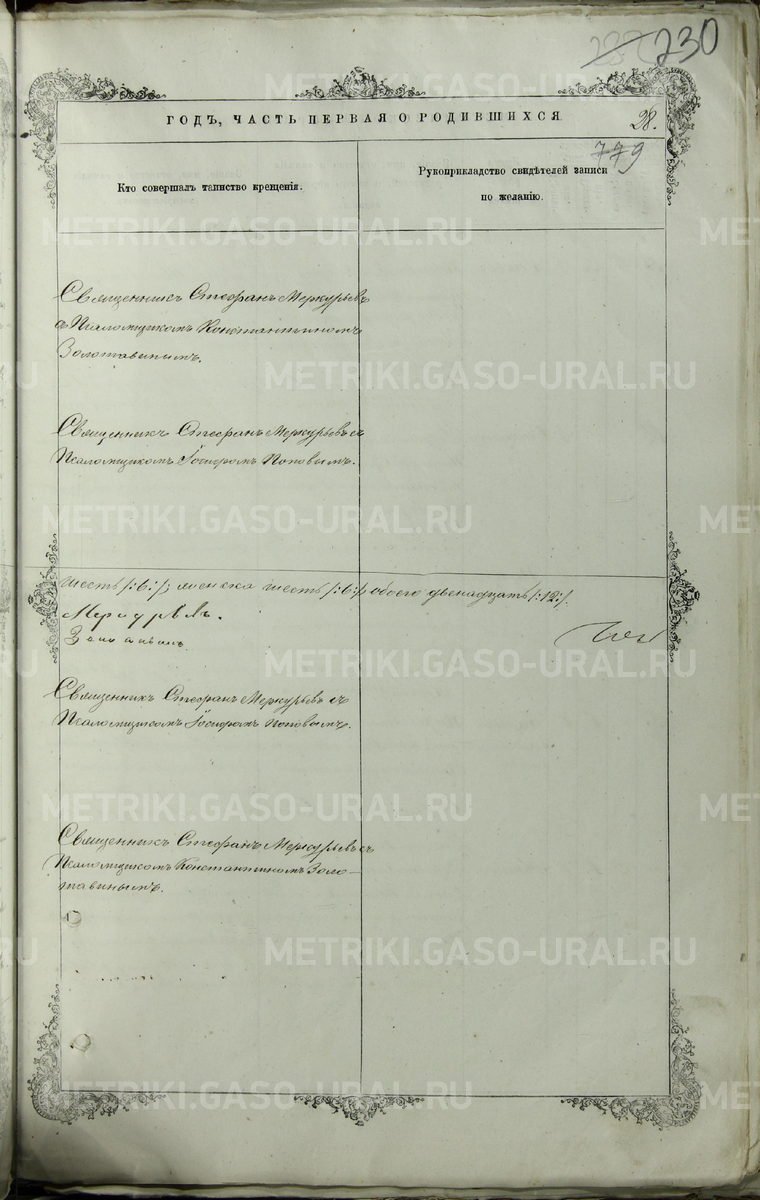 230
ГОДЪ, ЧАСТЬ ПЕРВАЯ О РОДИВШИХСЯ
28.
779
Кто совершалъ таинство крещенія.
Рукоприкладство свидѣтелей записи
по желанію.
Священникъ Стефанъ Меркурьевъ
съ Псаломщикомъ Константиномъ
Золотавинымъ.
Священникъ Стефанъ Меркурьевъ съ
Псаломщикомъ Іосифомъ Поповымъ.
шесть /:6:/ женска шесть /:6:/ обоего двенадцать /:12:/.
Меркурьевъ.
Священникъ Стефанъ Меркурьевъ съ
Псаломщикомъ Іосифомъ Поповымъ.
Священникъ Стефанъ Меркурьевъ съ
Псаломщикомъ Константиномъ Золо-
тавинымъ.
METRIKI.GASO-URAL.RU